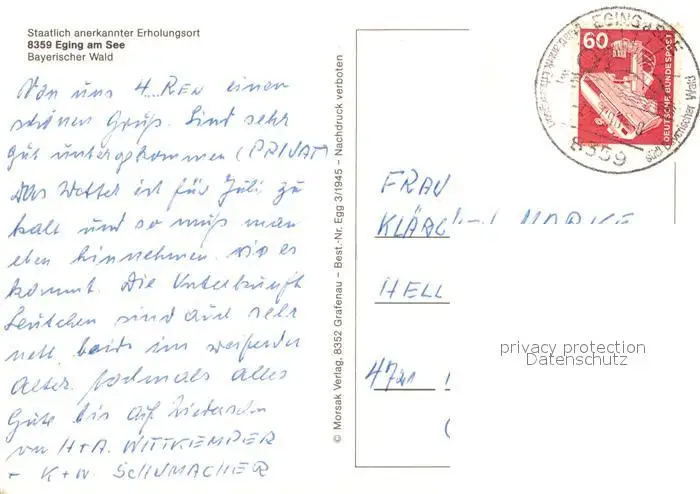 Staatlich anerkannter Erholungsort
8359 Eging am See
Bayerischer Wald
Von uns 4 REN einen
schönen Gruß. Sind sehr
gut untergekommen (PRIVAT)
Das Wetter ist für Juli zu
kalt und so muß man
eben hinnehmen wie es
kommt. Die Unterkunft
Leutchen sind auch sehr
nett, beide im
Alter. Nochmals alles
Gute bis auf Wiedersehn
von H+A. WITTKEMPER
+ K+W. SCHUMACHER
© Morsak Verlag, 8352 Grafenau – Best.-Nr. Egg 3/1945 – Nachdruck verboten
EGING A SEE
Bayerischer Wald
8359
60
DEUTSCHE BUNDESPOST
FRAU
HELL
privacy protection
Datenschutz